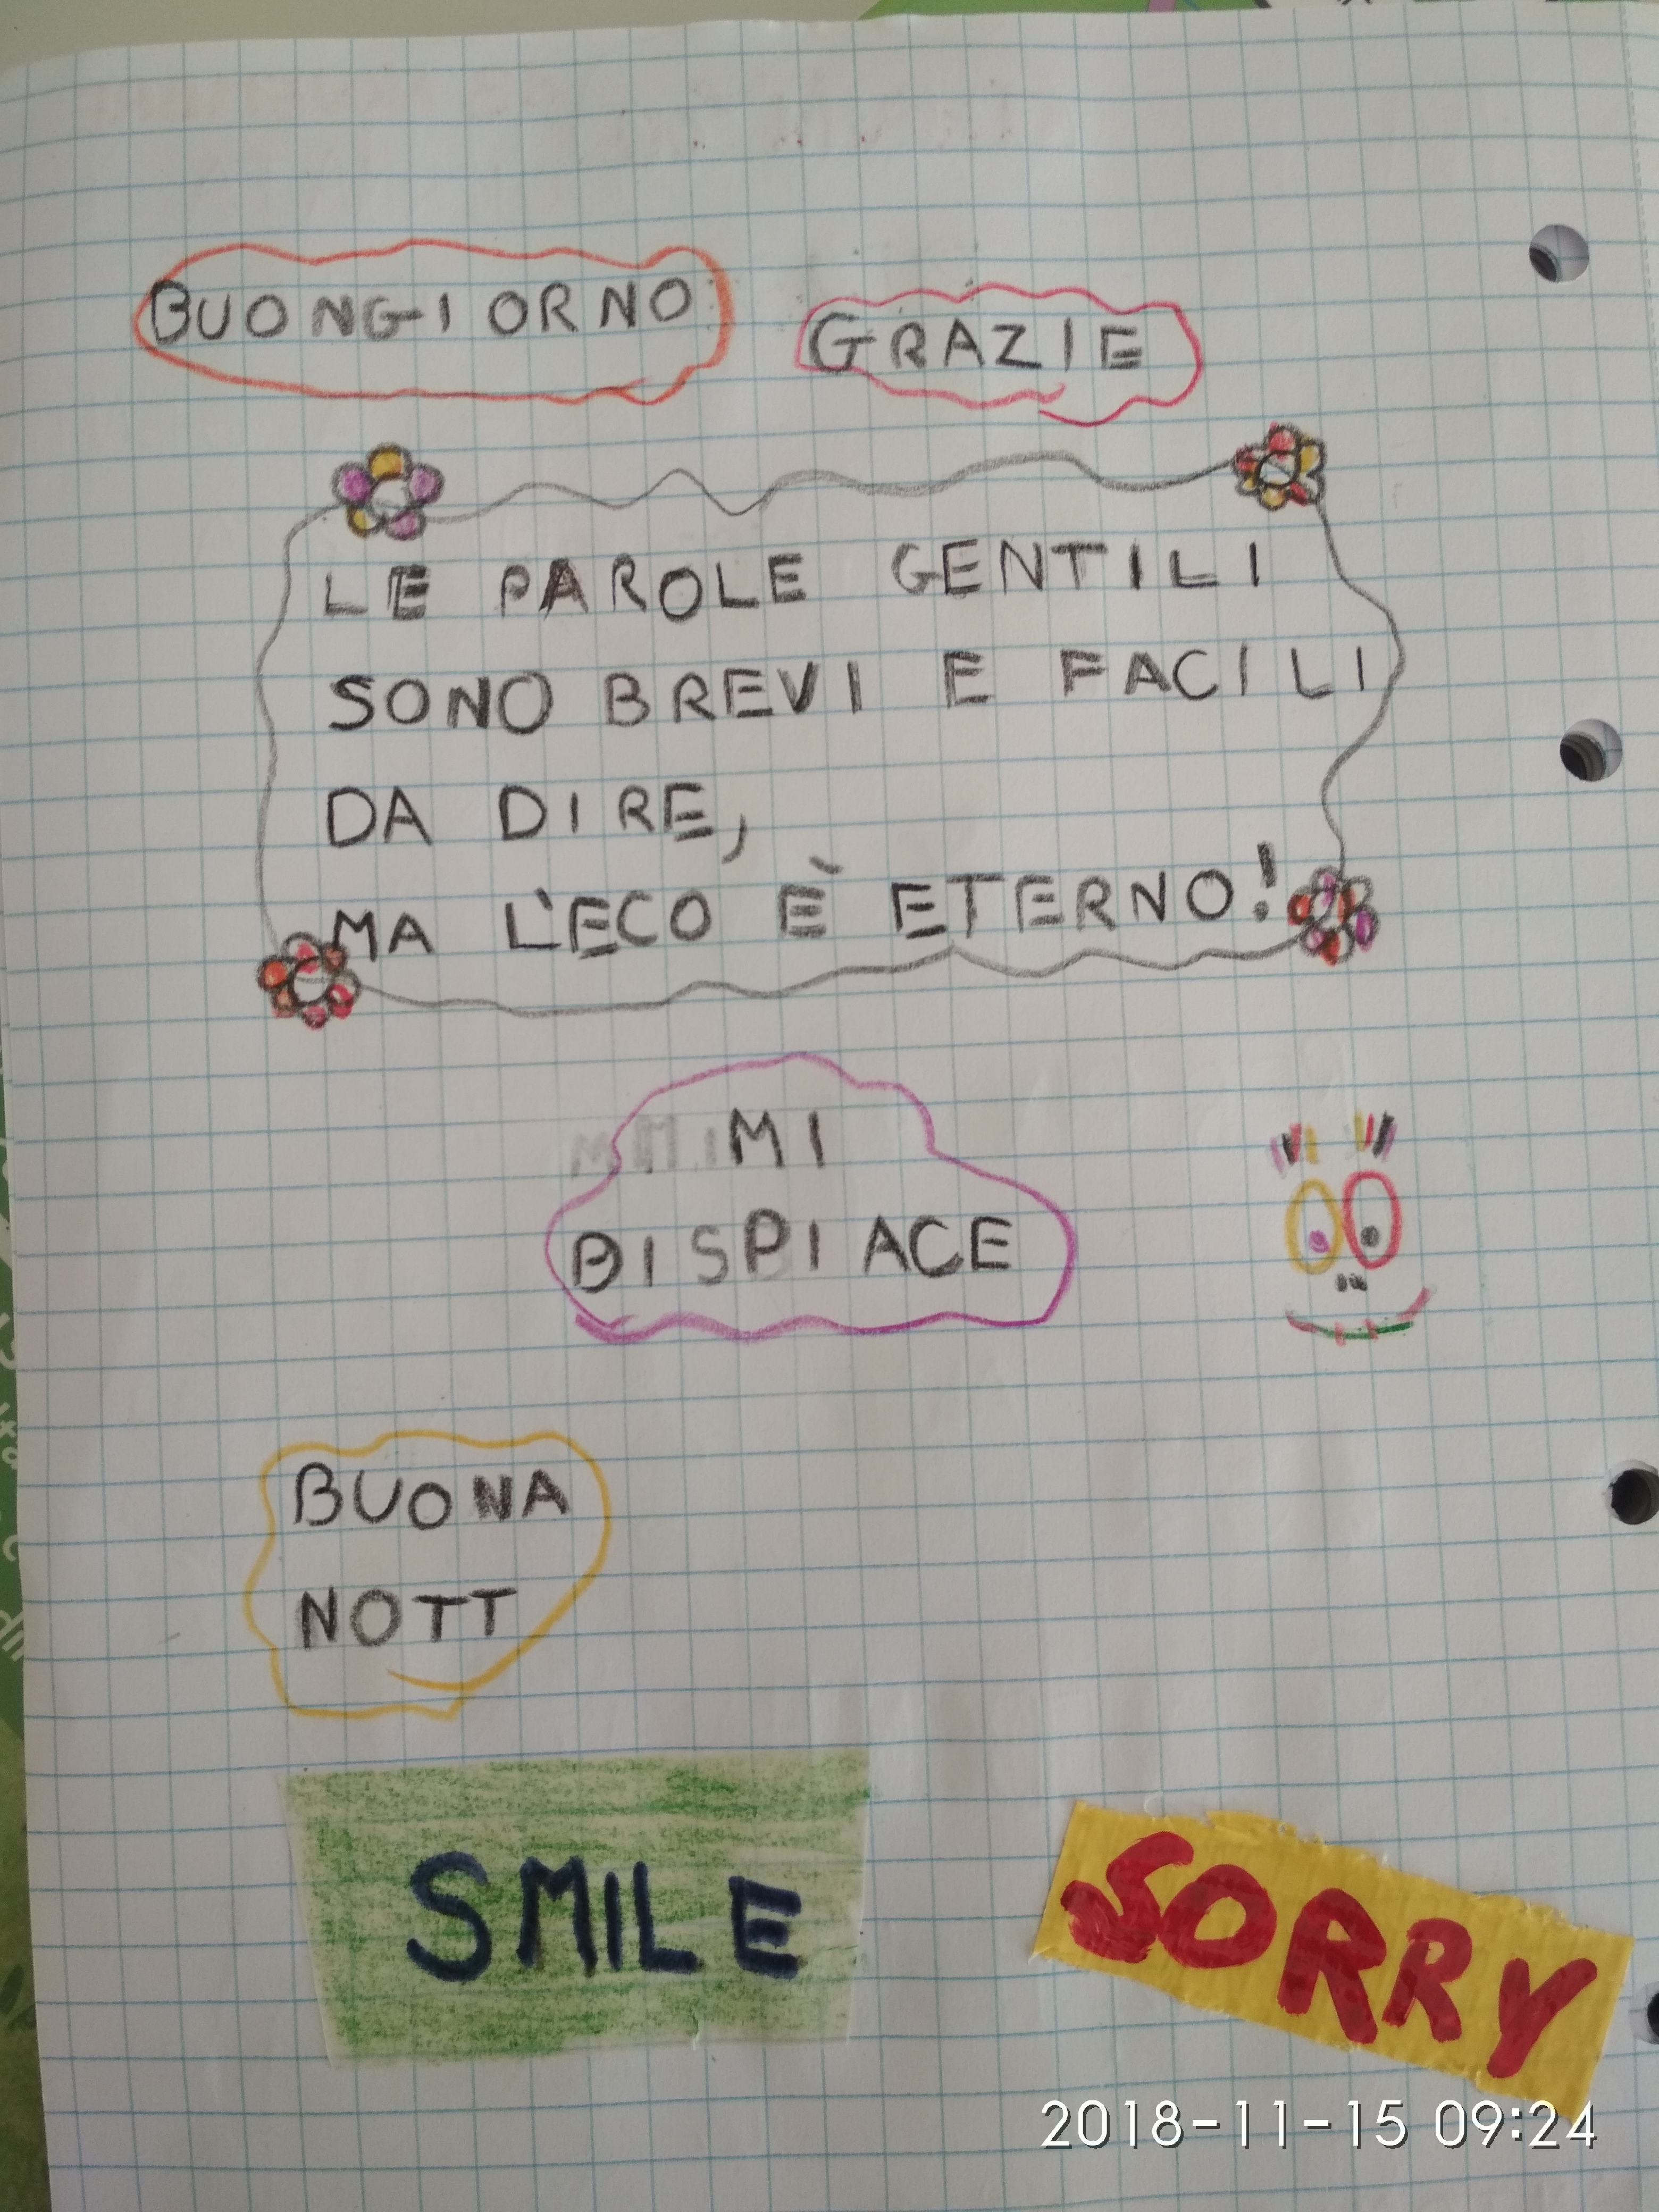 BUONGIORNO
GRAZIE
LE PAROLE GENTILI
SONO BREVI E FACILI
DA DIRE,
MA L'ECO È ETERNO!
MI
DISPIACE
BUONA
NOTT
SMILE
SORRY
2018-11-15 09:24